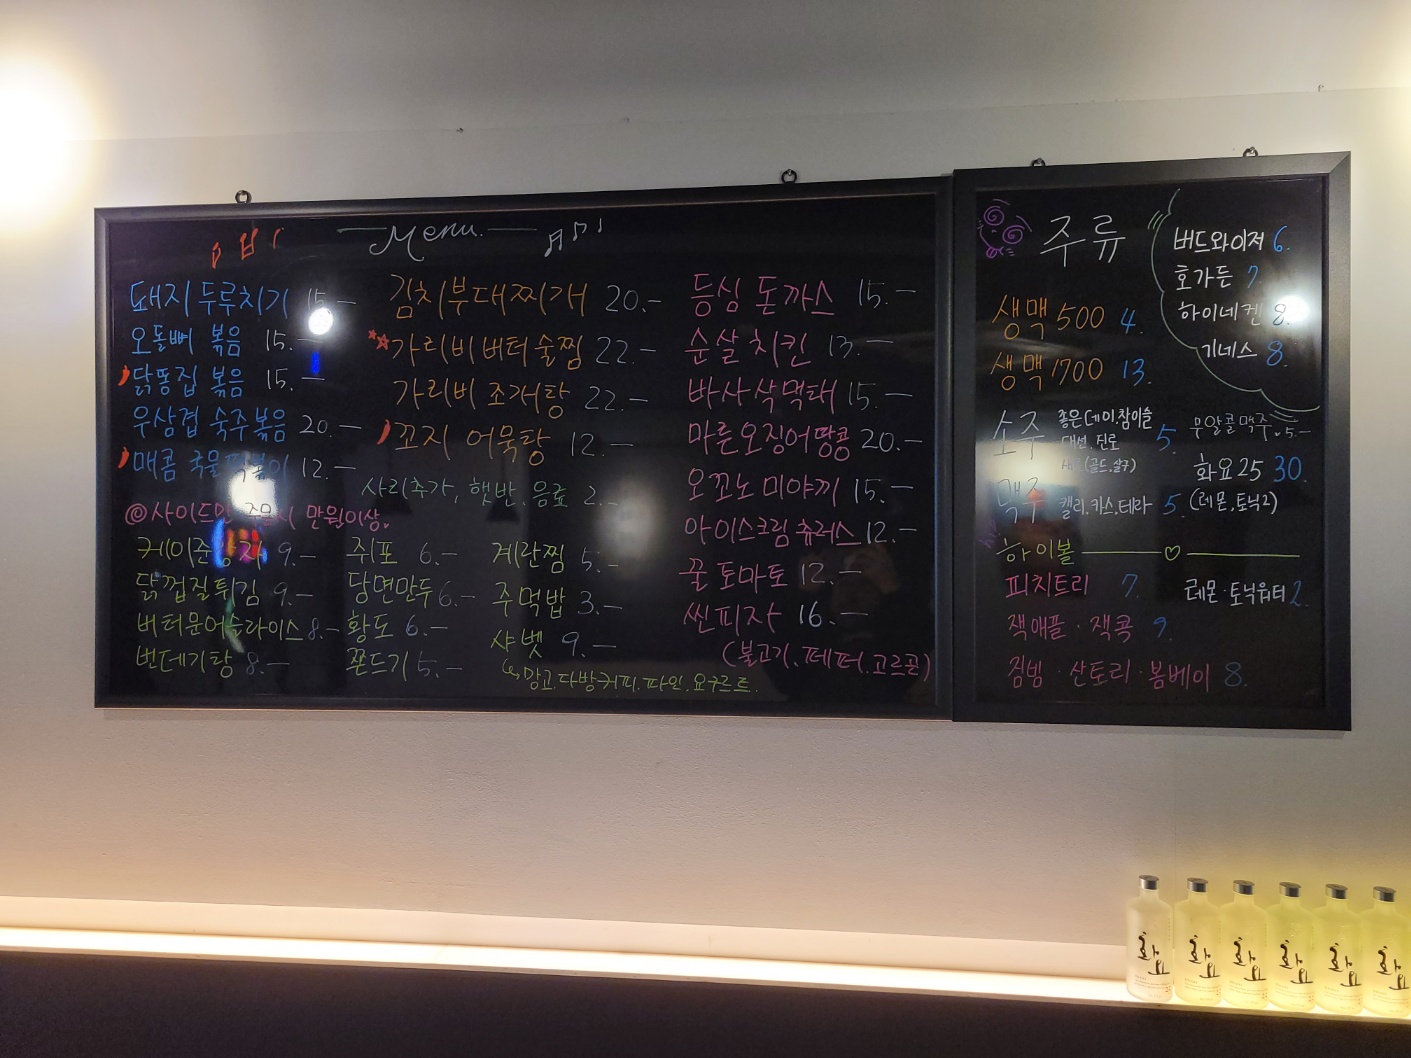 Menu.
돼지 두루치기 15.—
오돌뼈 볶음 15.—
닭똥집 볶음 15.—
우삼겹 숙주볶음 20.—
매콤 국물떡볶이 12.—
김치부대찌개 20.—
가리비버터술찜 22.—
가리비 조개탕 22.—
꼬지 어묵탕 12.—
사리추가, 햇반, 음료 2.—
◎사이드만 주문시 만원이상.
케이준감자 9.—
닭껍질튀김 9.—
버터문어슬라이스 8.—
번데기탕 8.—
쥐포 6.—
당면만두 6.—
황도 6.—
쫀드기 5.—
계란찜 5.—
주먹밥 3.—
샤벳 9.—
망고.다방커피.파인.요구르트.
등심 돈까스 15.—
순살치킨 13.—
바사삭먹태 15.—
마른오징어땅콩 20.—
오꼬노미야끼 15.—
아이스크림츄러스 12.—
꿀토마토 12.—
씬피자 16.—
(불고기.페퍼.고르곤)
주류
생맥 500 4.
생맥 1700 13.
버드와이저 6.
호가든 7.
하이네켄 8.
기네스 8.
소주 좋은데이.참이슬
대선.진로
(골드.살구)
5.
맥주 켈리.카스.테라 5.
무알콜맥주.5.—
화요25 30.
(레몬.토닉2)
하이볼
피치트리 7.
잭애플·잭콕 9.
짐빔·산토리·봄베이 8.
레몬·토닉워터 2.
화요
화요
화요
화요
화요
화요